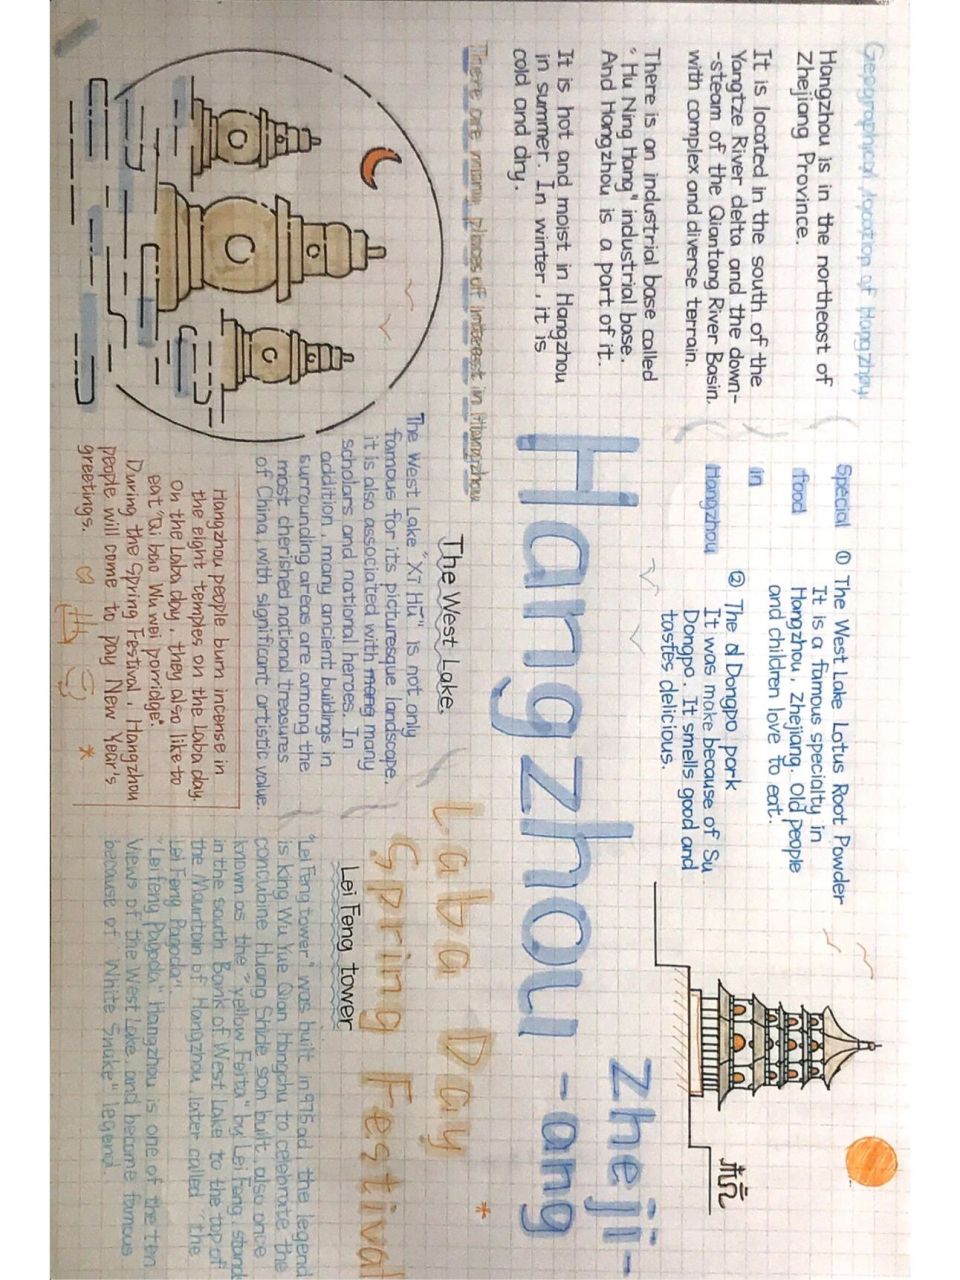 Geographical location of Hangzhou
Hangzhou is in the northeast of
Zhejiang Province.
It is located in the south of the
Yangtze River delta and the down-
-steam of the Qiantang River Basin,
with complex and diverse terrain.
There is an industrial base called
"Hu Ning Hang" industrial base.
And Hangzhou is a part of it.
It is hot and moist in Hangzhou
in summer. In winter, it is
cold and dry.
There are many places of interest in Hangzhou
Special
food
in
Hangzhou
① The West Lake Lotus Root Powder
It is a famous specialty in
Hangzhou, Zhejiang. Old people
and children love to eat.
② The d Dongpo park
It was make because of Su
Dongpo. It smells good and
tastes delicious.
杭
Hangzhou
Zheji-
-ang
The West Lake.
The West Lake "Xī Hú" is not only
famous for its picturesque landscape,
it is also associated with many
scholars and national heroes. In
addition, many ancient buildings in
surrounding areas are among the
most cherished national treasures
of China, with significant artistic value.
Laba Day
Spring Festival
Hangzhou people burn incense in
the eight temples on the Laba day.
On the Laba day, they also like to
eat "Qi bao Wu wei porridge".
During the Spring Festival, Hangzhou
people will come to pay New Year's
greetings.
Lei Feng tower
"Lei Feng tower" was built in 975 ad, the legend
is king Wu Yue Qian Hongchu to celebrate the
concubine Huang Shide son built, also once
known as the "yellow Feita" by Lei Feng, stand
in the south Bank of West Lake to the top of
the Mountain of Hangzhou, later called "the
Lei Feng Pagoda".
"Leifeng Pagoda" Hangzhou is one of the ten
Views of the West Lake and became famous
because of "White Snake" legend